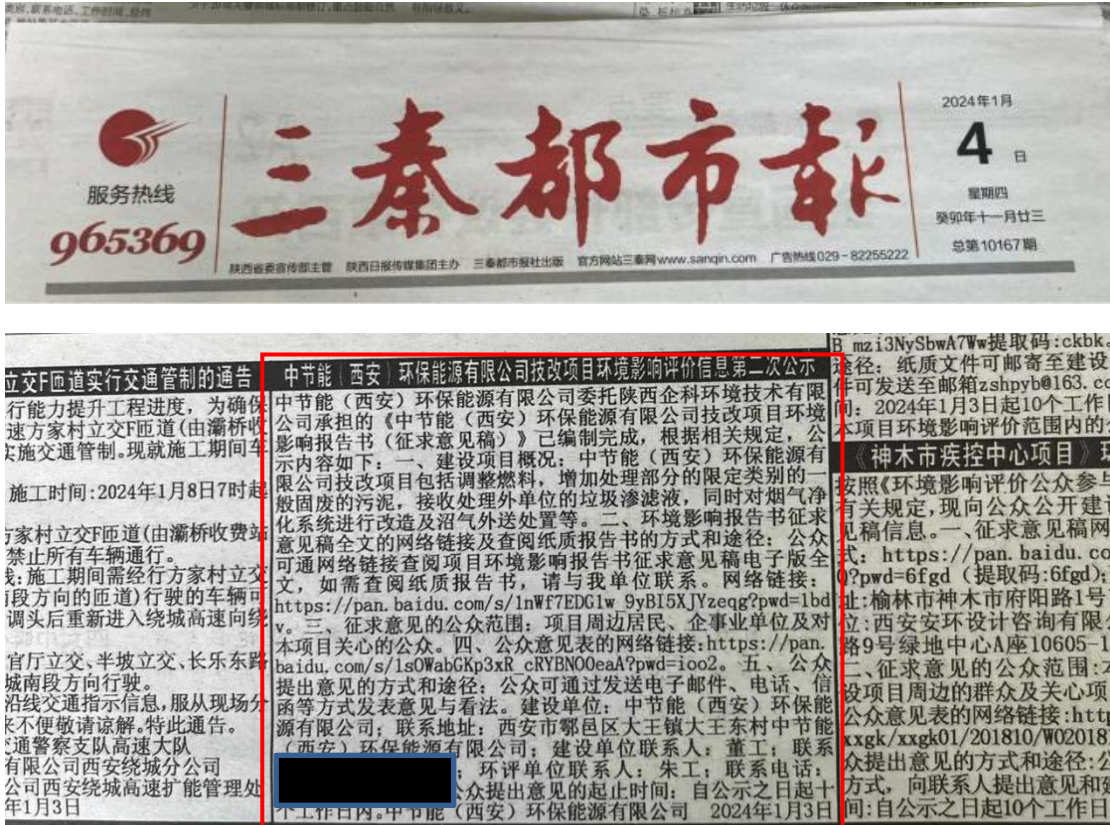 服务热线
965369
三秦都市报
2024年1月
4日
星期四
癸卯年十一月廿三
总第10167期
陕西省委宣传部主管 陕西日报传媒集团主办 三秦都市报社出版 官方网站三秦网www.sanqin.com 广告热线029-82255222
立交F匝道实行交通管制的通告
行能力提升工程进度，为确保
速方家村立交F匝道(由灞桥收
实施交通管制。现就施工期间车
施工时间:2024年1月8日7时起
方家村立交F匝道(由灞桥收费站
禁止所有车辆通行。
:施工期间需经行方家村立交
段方向的匝道)行驶的车辆可
调头后重新进入绕城高速向绕
官厅立交、半坡立交、长乐东路
城南段方向行驶。
沿线交通指示信息,服从现场分
来不便敬请谅解。特此通告。
交通警察支队高速大队
有限公司西安绕城分公司
公司西安绕城高速扩能管理处
年1月3日
中节能（西安）环保能源有限公司技改项目环境影响评价信息第二次公示
中节能（西安）环保能源有限公司委托陕西企科环境技术有限
公司承担的《中节能（西安）环保能源有限公司技改项目环境
影响报告书（征求意见稿）》已编制完成，根据相关规定，公
示内容如下：一、建设项目概况：中节能（西安）环保能源有
限公司技改项目包括调整燃料，增加处理部分的限定类别的一
般固废的污泥，接收处理外单位的垃圾渗滤液，同时对烟气净
化系统进行改造及沼气外送处置等。二、环境影响报告书征求
意见稿全文的网络链接及查阅纸质报告书的方式和途径：公众
可通网络链接查阅项目环境影响报告书征求意见稿电子版全
文，如需查阅纸质报告书，请与我单位联系。网络链接：
https://pan.baidu.com/s/1nWf7EDG1w_9yBI5XJYzeqg?pwd=1bd
v。三、征求意见的公众范围：项目周边居民、企事业单位及对
本项目关心的公众。四、公众意见表的网络链接:https://pan.
baidu.com/s/1sOWabGKp3xR_cRYBNO0eaA?pwd=ioo2。五、公众
提出意见的方式和途径：公众可通过发送电子邮件、电话、信
函等方式发表意见与看法。建设单位：中节能（西安）环保能
源有限公司；联系地址：西安市鄠邑区大王镇大王东村中节能
（西安）环保能源有限公司；建设单位联系人：董工；联系
；环评单位联系人：朱工；联系电话：
众提出意见的起止时间：自公示之日起十
个工作日内。中节能（西安）环保能源有限公司 2024年1月3日
B_mzi3NySbwA7Ww提取码:ckbk。
途径：纸质文件可邮寄至建设
件可发送至邮箱zshpyb@163.co
间：2024年1月3日起10个工作
本项目环境影响评价范围内的
《神木市疾控中心项目》环
按照《环境影响评价公众参与
有关规定,现向公众公开建
见稿信息。一、征求意见稿网
式：https://pan.baidu.co
Q?pwd=6fgd（提取码:6fgd);
址:榆林市神木市府阳路1号
位:西安安环设计咨询有限
路9号绿地中心A座10605-1
二、征求意见的公众范围:
设项目周边的群众及关心项
公众意见表的网络链接:http
xxgk/xxgk01/201810/W02018
众提出意见的方式和途径:公
方式，向联系人提出意见和建
间:自公示之日起10个工作日